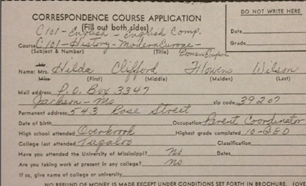 CORRESPONDENCE COURSE APPLICATION
DO NOT WRITE HERE.
(Fill out both sides)
C101 - English - English Comp.
Date
C101 - History - Modern Europe -
Grade
(Subject & Number) (Title)
Name: Mrs. Hilda Clifford Flowers Wilson
(First) (Middle) (Maiden) (Last)
Mail address P.O. Box 3347
Jackson - Ms zip code 39207
Permanent address 543 Rose Street
Date of Birth Occupation Parent Coordinator
High school attended Overbrook Highest grade completed 10 - GED
College last attended Tougaloo Classification
Have you attended the University of Mississippi? No Dates
Are you taking work at present in any college? No
If so, give name of college or university
NO REFUND OF MONEY IS MADE EXCEPT UNDER CONDITIONS SET FORTH IN BROCHURE.